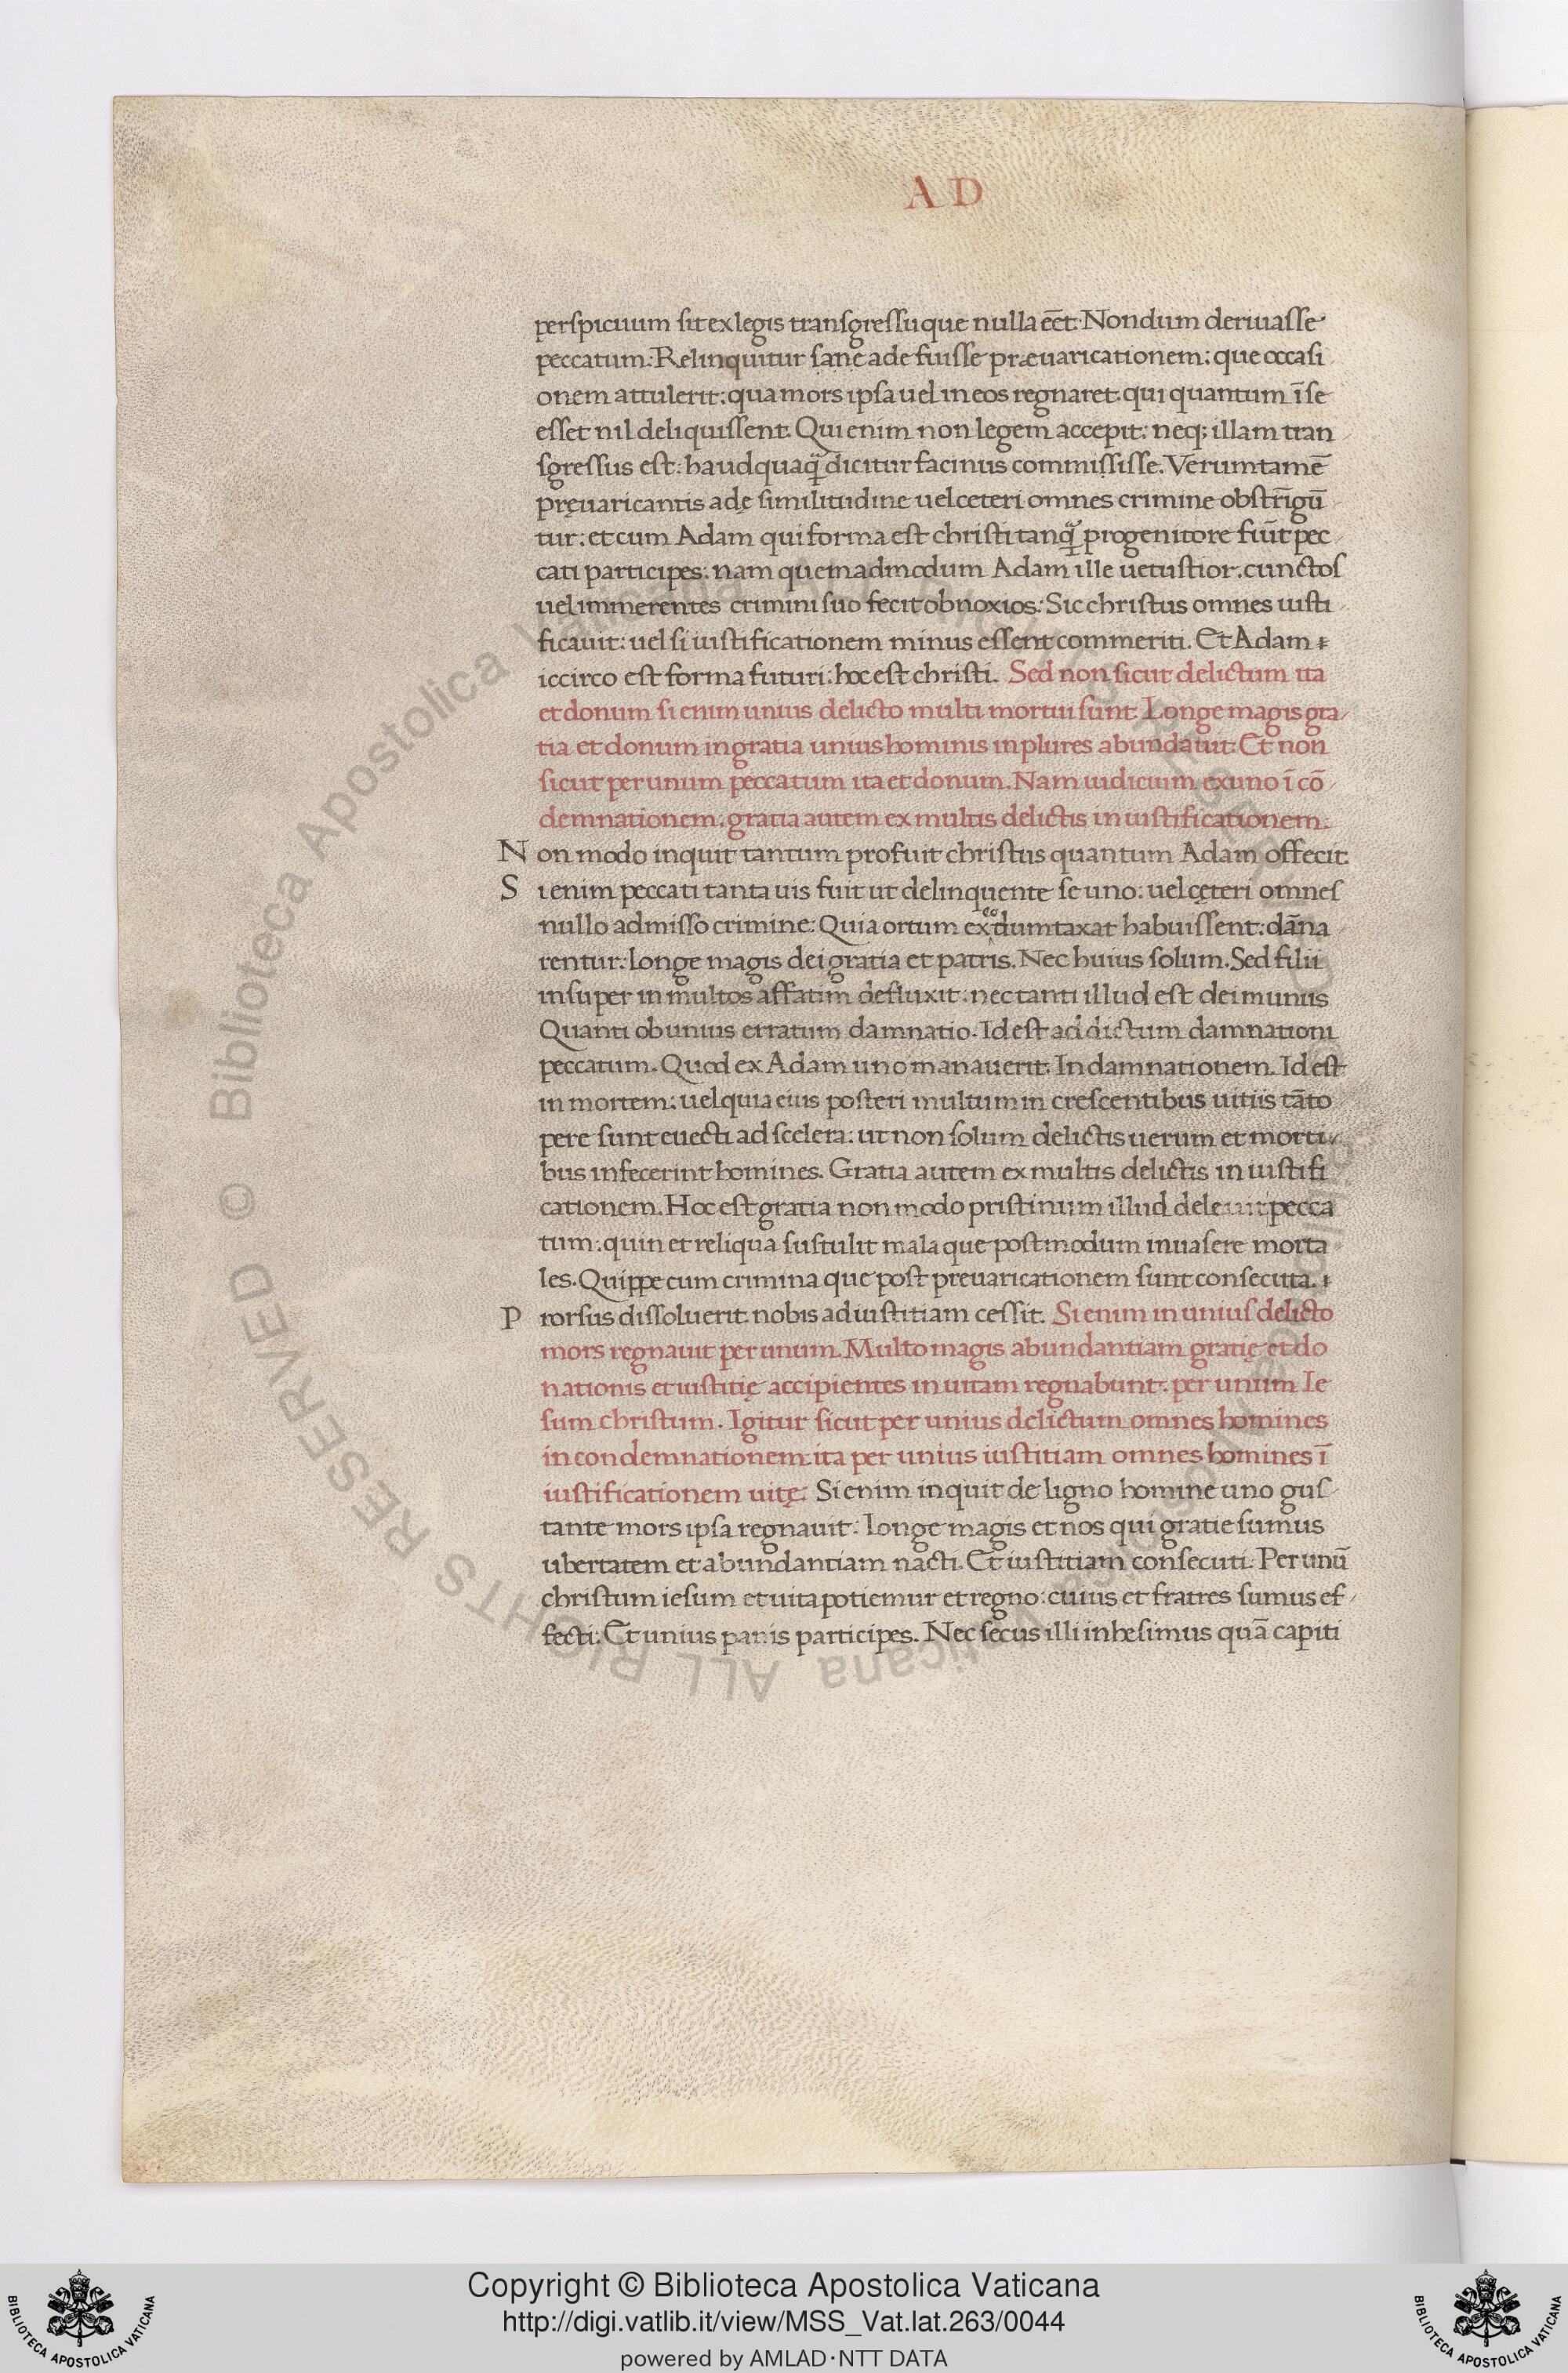 A D
perspicuum sit ex legis transgressu que nulla eēt: Nondum deriuasse
peccatum: Relinquitur sane ade fuisse præuaricationem: que occasi
onem attulerit: qua mors ipsa uel in eos regnaret: qui quantum ī se
esset nil deliquissent. Qui enim non legem accepit: neq; illam tran
sgressus est: haudquaq̃ dicitur facinus commisisse. Verumtamē
pręuaricantis adę similitudine uel ceteri omnes crimine obstrīgū
tur: et cum Adam qui forma est christi tanq̃ progenitore fiūt pec
cati participes: nam quemadmodum Adam ille uetustior. cunctos
uel immerentes crimini suo fecit obnoxios: Sic christus omnes iusti
ficauit: uel si iustificationem minus essent commeriti. Et Adam
iccirco est forma futuri: hoc est christi. Sed non sicut delictum ita
et donum si enim unius delicto multi mortui sunt: Longe magis gra
tia et donum in gratia unius hominis in plures abundauit: Et non
sicut per unum peccatum ita et donum. Nam iudicium ex uno ī cō
demnationem. gratia autem ex multis delictis in iustificationem.
Non modo inquit tantum profuit christus quantum Adam offecit:
Si enim peccati tanta uis fuit ut delinquente se uno: uel cęteri omnes
nullo admisso crimine: Quia ortum ex eo dumtaxat habuissent: dāna
rentur: longe magis dei gratia et patris. Nec huius solum. Sed filii
insuper in multos affatim defluxit: nec tanti illud est dei munus
Quanti ob unius erratum damnatio. Id est addictum damnationi
peccatum. Quod ex Adam uno manauerit: In damnationem. Id est
in mortem: uel quia eius posteri multum in crescentibus uitiis tāto
pere sunt euecti ad scelera: ut non solum delictis uerum et morti
bus infecerint homines. Gratia autem ex multis delictis in iustifi
cationem. Hoc est gratia non modo pristinum illud deleuit pecca
tum: quin et reliqua sustulit mala que postmodum inuasere morta
les. Quippe cum crimina que post preuaricationem sunt consecuta.
Prorsus dissoluerit nobis ad iustitiam cessit. Si enim in unius delicto
mors regnauit per unum. Multo magis abundantiam gratię et do
nationis et iustitię accipientes in uitam regnabunt: per unum Ie
sum christum. Igitur sicut per unius delictum omnes homines
in condemnationem: ita per unius iustitiam omnes homines ī
iustificationem uitę: Si enim inquit de ligno homine uno gus
tante mors ipsa regnauit: longe magis et nos qui gratie sumus
ubertatem et abundantiam nacti. Et iustitiam consecuti. Per unū
christum iesum et uita potiemur et regno: cuius et fratres sumus ef
fecti: Et unius panis participes. Nec secus illi inhesimus quā capiti
Copyright © Biblioteca Apostolica Vaticana
http://digi.vatlib.it/view/MSS_Vat.lat.263/0044
powered by AMLAD·NTT DATA
BIBLIOTECA APOSTOLICA VATICANA
BIBLIOTECA APOSTOLICA VATICANA